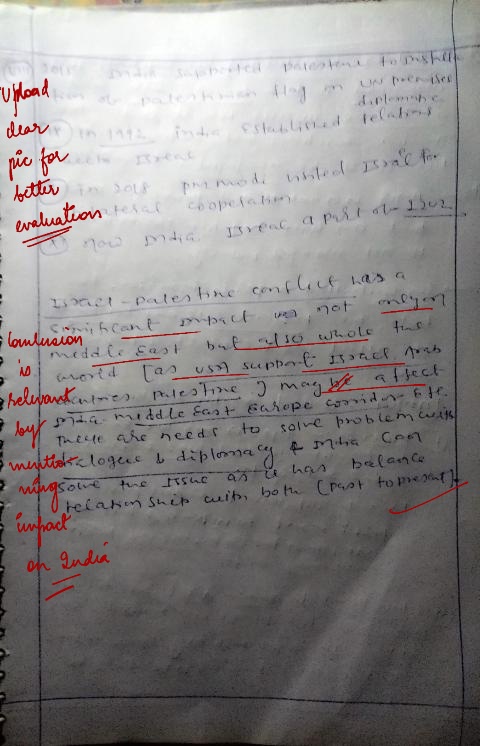 2015 India supported palestine to install
tion of palestinian flag in UN premises
in 1992 India Established diplomatic relations
with Isreal
in 2018 pm modi visited Israel for
lateral cooperation
Now India Isreal a part of I2U2
Israel-palestine conflict has a
significant impact not only on
middle East but also whole the
world [as USA support Israel, Arab
countries palestine] may affect
India middle East Europe corridor etc.
There are needs to solve problem with
dialogue & diplomacy & India can
solve the issue as it has balance
relationship with both [past to present].
Upload
clear
pic for
better
evaluation
Conclusion
is
relevant
by
mentio
ning
impact
on India